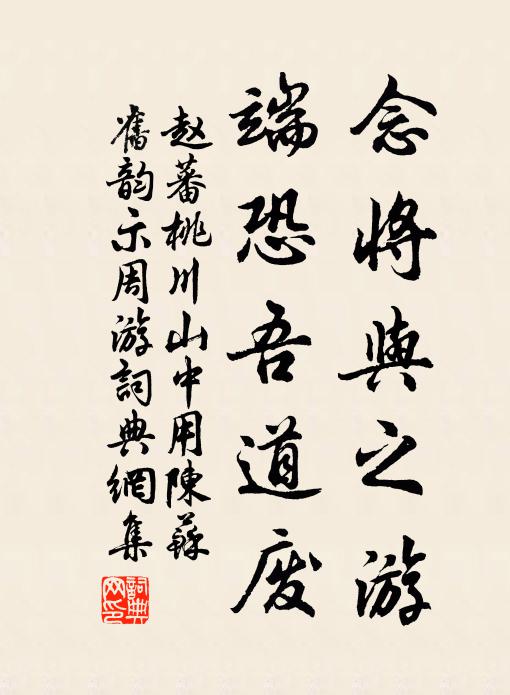 念將與之游
端恐吾道废
赵蕃桃川山中用陳蘇
舊韵示周游詞典網集
詞典网印